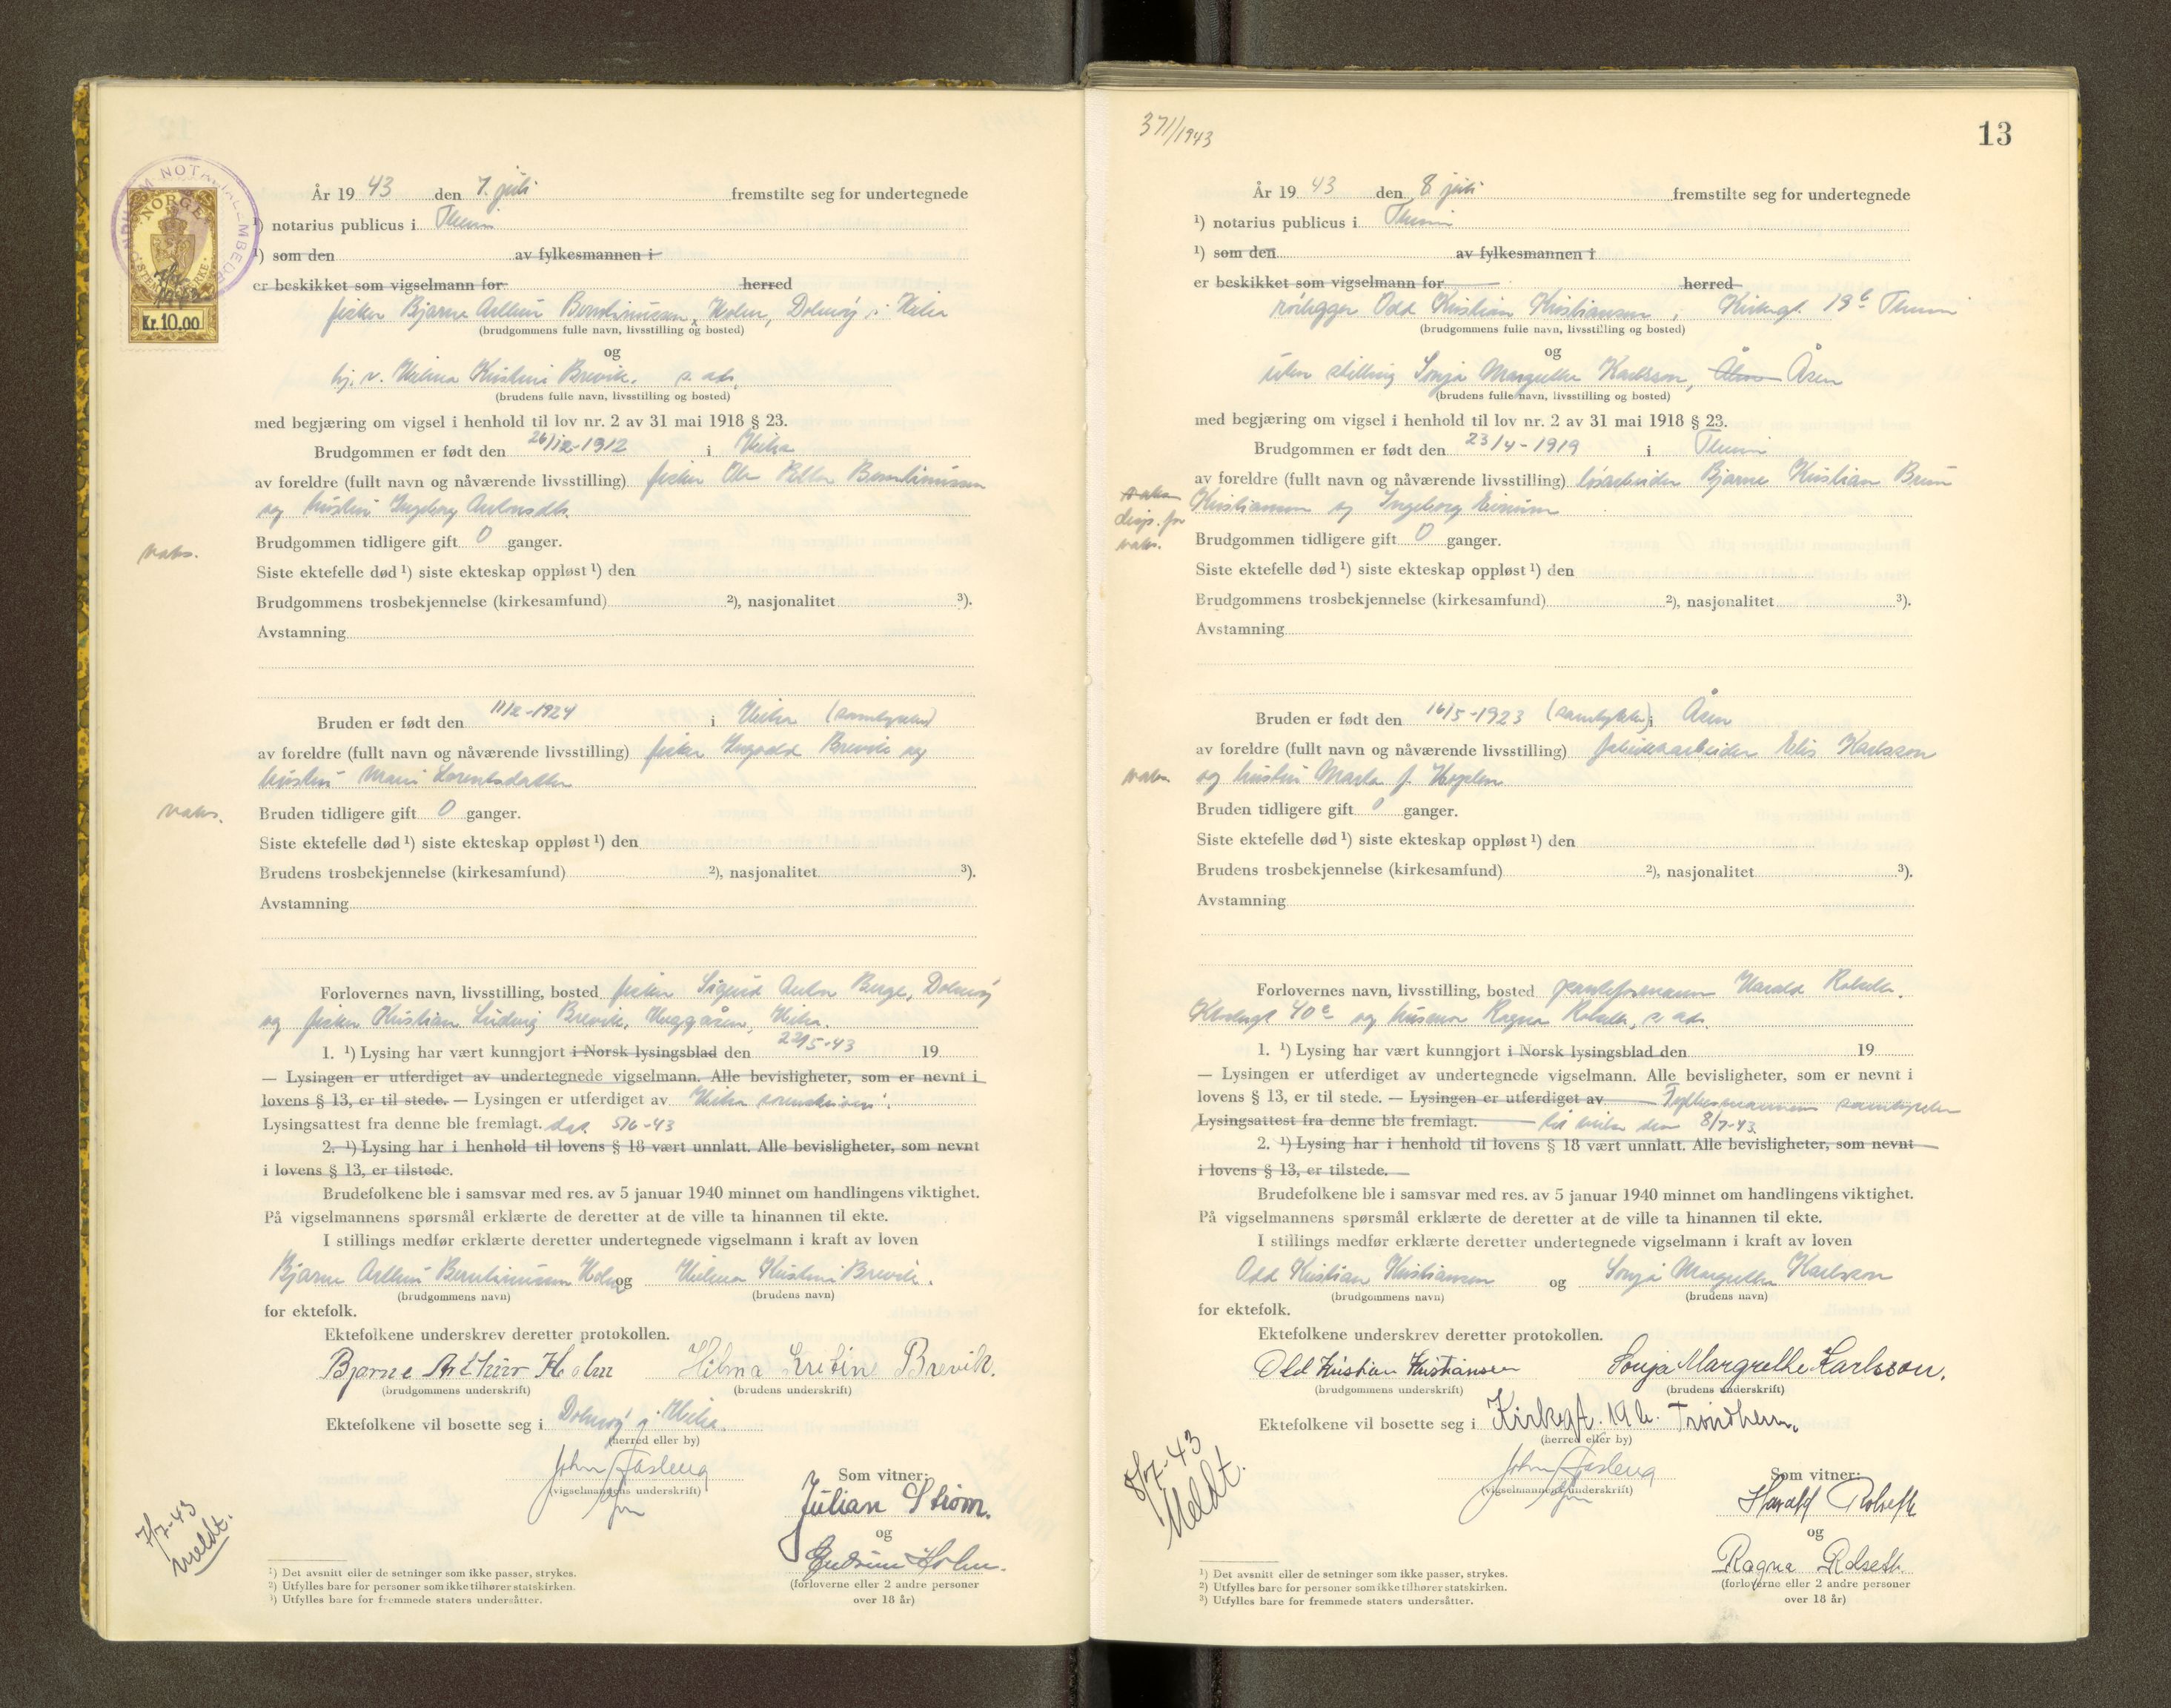 TRONDHEIM NOTARIALEMBEDE
NORGE
Kr. 10.00
År 19 43 den 7. juli fremstilte seg for undertegnede
¹) notarius publicus i
¹) som den av fylkesmannen i
er beskikket som vigselmann for herred
fisker Bjarne Arthur Holm, Dolmøy i Hitra
(brudgommens fulle navn, livsstilling og bosted)
og
Hilma Kristine Brevik. s. ads.
(brudens fulle navn, livsstilling og bosted)
med begjæring om vigsel i henhold til lov nr. 2 av 31 mai 1918 § 23.
Brudgommen er født den 26/12-1912 i Hitra
av foreldre (fullt navn og nåværende livsstilling) fisker
og hustru Ingeborg
Brudgommen tidligere gift 0 ganger.
vaks.
Siste ektefelle død ¹) siste ekteskap oppløst ¹) den
Brudgommens trosbekjennelse (kirkesamfund) ²), nasjonalitet ³).
Avstamning
Bruden er født den 11/2-1924 i Hitra (samtykke)
av foreldre (fullt navn og nåværende livsstilling) fisker Brevik og
hustru Marie Lorentsdatter
vaks.
Bruden tidligere gift 0 ganger.
Siste ektefelle død ¹) siste ekteskap oppløst ¹) den
Brudens trosbekjennelse (kirkesamfund) ²), nasjonalitet ³).
Avstamning
Forlovernes navn, livsstilling, bosted fisker Sigurd Berge, Dolmøy
og fisker Kristian Ludvig Brevik, Hitra.
1. ¹) Lysing har vært kunngjort i Norsk lysingsblad den 22/5-43 19
— Lysingen er utferdiget av undertegnede vigselmann. Alle bevisligheter, som er nevnt i
lovens § 13, er til stede. — Lysingen er utferdiget av Hitra
Lysingsattest fra denne ble fremlagt. dat. 5/6-43
2. ¹) Lysing har i henhold til lovens § 18 vært unnlatt. Alle bevisligheter, som nevnt
i lovens § 13, er tilstede.
Brudefolkene ble i samsvar med res. av 5 januar 1940 minnet om handlingens viktighet.
På vigselmannens spørsmål erklærte de deretter at de ville ta hinannen til ekte.
I stillings medfør erklærte deretter undertegnede vigselmann i kraft av loven
Bjarne Arthur Holm og Hilma Kristine Brevik.
(brudgommens navn) (brudens navn)
for ektefolk.
Ektefolkene underskrev deretter protokollen.
Bjarne Arthur Holm Hilma Kristine Brevik.
(brudgommens underskrift) (brudens underskrift)
Ektefolkene vil bosette seg i Dolmøy i Hitra.
(herred eller by)
John Aasleng
(vigselmannens underskrift)
Som vitner:
Julian Strøm.
og
Gudrun Holm.
(forloverne eller 2 andre personer
over 18 år)
7/7-43
meldt.
¹) Det avsnitt eller de setninger som ikke passer, strykes.
²) Utfylles bare for personer som ikke tilhører statskirken.
³) Utfylles bare for fremmede staters undersåtter.
371/1943
13
År 19 43 den 8 juli fremstilte seg for undertegnede
¹) notarius publicus i
¹) som den av fylkesmannen i
er beskikket som vigselmann for herred
rørlegger Odd Kristian Kristiansen, Kirkegt. 19 b
(brudgommens fulle navn, livsstilling og bosted)
og
uten stilling Sonja Margrethe Karlsson, Åsen
(brudens fulle navn, livsstilling og bosted)
med begjæring om vigsel i henhold til lov nr. 2 av 31 mai 1918 § 23.
Brudgommen er født den 23/4-1919 i
av foreldre (fullt navn og nåværende livsstilling) løsarbeider Bjarne Kristian Brun
Kristiansen og Ingeborg
vaks.
disp. for
vaks.
Brudgommen tidligere gift 0 ganger.
Siste ektefelle død ¹) siste ekteskap oppløst ¹) den
Brudgommens trosbekjennelse (kirkesamfund) ²), nasjonalitet ³).
Avstamning
Bruden er født den 16/5-1923 (samtykke) i Åsen
av foreldre (fullt navn og nåværende livsstilling) fabrikkarbeider Elis Karlsson
og hustru Marta f. Hoplen
vaks.
Bruden tidligere gift 0 ganger.
Siste ektefelle død ¹) siste ekteskap oppløst ¹) den
Brudens trosbekjennelse (kirkesamfund) ²), nasjonalitet ³).
Avstamning
Forlovernes navn, livsstilling, bosted Harald Rolseth.
40 og husmor Ragna Rolseth, s. ads.
1. ¹) Lysing har vært kunngjort i Norsk lysingsblad den 19
— Lysingen er utferdiget av undertegnede vigselmann. Alle bevisligheter, som er nevnt i
lovens § 13, er til stede. — Lysingen er utferdiget av Fylkesmannens samtykke
Lysingsattest fra denne ble fremlagt. til vielse den 8/7-43.
2. ¹) Lysing har i henhold til lovens § 18 vært unnlatt. Alle bevisligheter, som nevnt
i lovens § 13, er tilstede.
Brudefolkene ble i samsvar med res. av 5 januar 1940 minnet om handlingens viktighet.
På vigselmannens spørsmål erklærte de deretter at de ville ta hinannen til ekte.
I stillings medfør erklærte deretter undertegnede vigselmann i kraft av loven
Odd Kristian Kristiansen og Sonja Margrethe Karlsson
(brudgommens navn) (brudens navn)
for ektefolk.
Ektefolkene underskrev deretter protokollen.
Odd Kristian Kristiansen Sonja Margrethe Karlsson.
(brudgommens underskrift) (brudens underskrift)
Ektefolkene vil bosette seg i Kirkegt. 19 b. Trondheim.
(herred eller by)
John Aasleng
(vigselmannens underskrift)
Som vitner:
Harald Rolseth
og
Ragna Rolseth.
(forloverne eller 2 andre personer
over 18 år)
8/7-43
Meldt.
¹) Det avsnitt eller de setninger som ikke passer, strykes.
²) Utfylles bare for personer som ikke tilhører statskirken.
³) Utfylles bare for fremmede staters undersåtter.